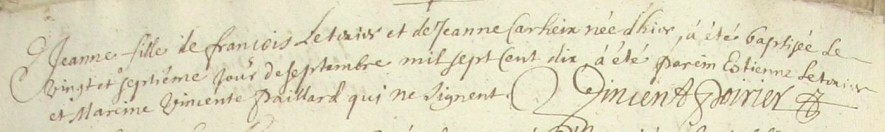 Jeanne fille de francois Letexier et de Jeanne Carhein née d'hier, a été baptisée Le
vingt et septiéme jour de septembre mil sept Cent dix, a été parein Estienne Letexier
et Mareine Vincente Paillard qui ne signent. Vincent Poirier